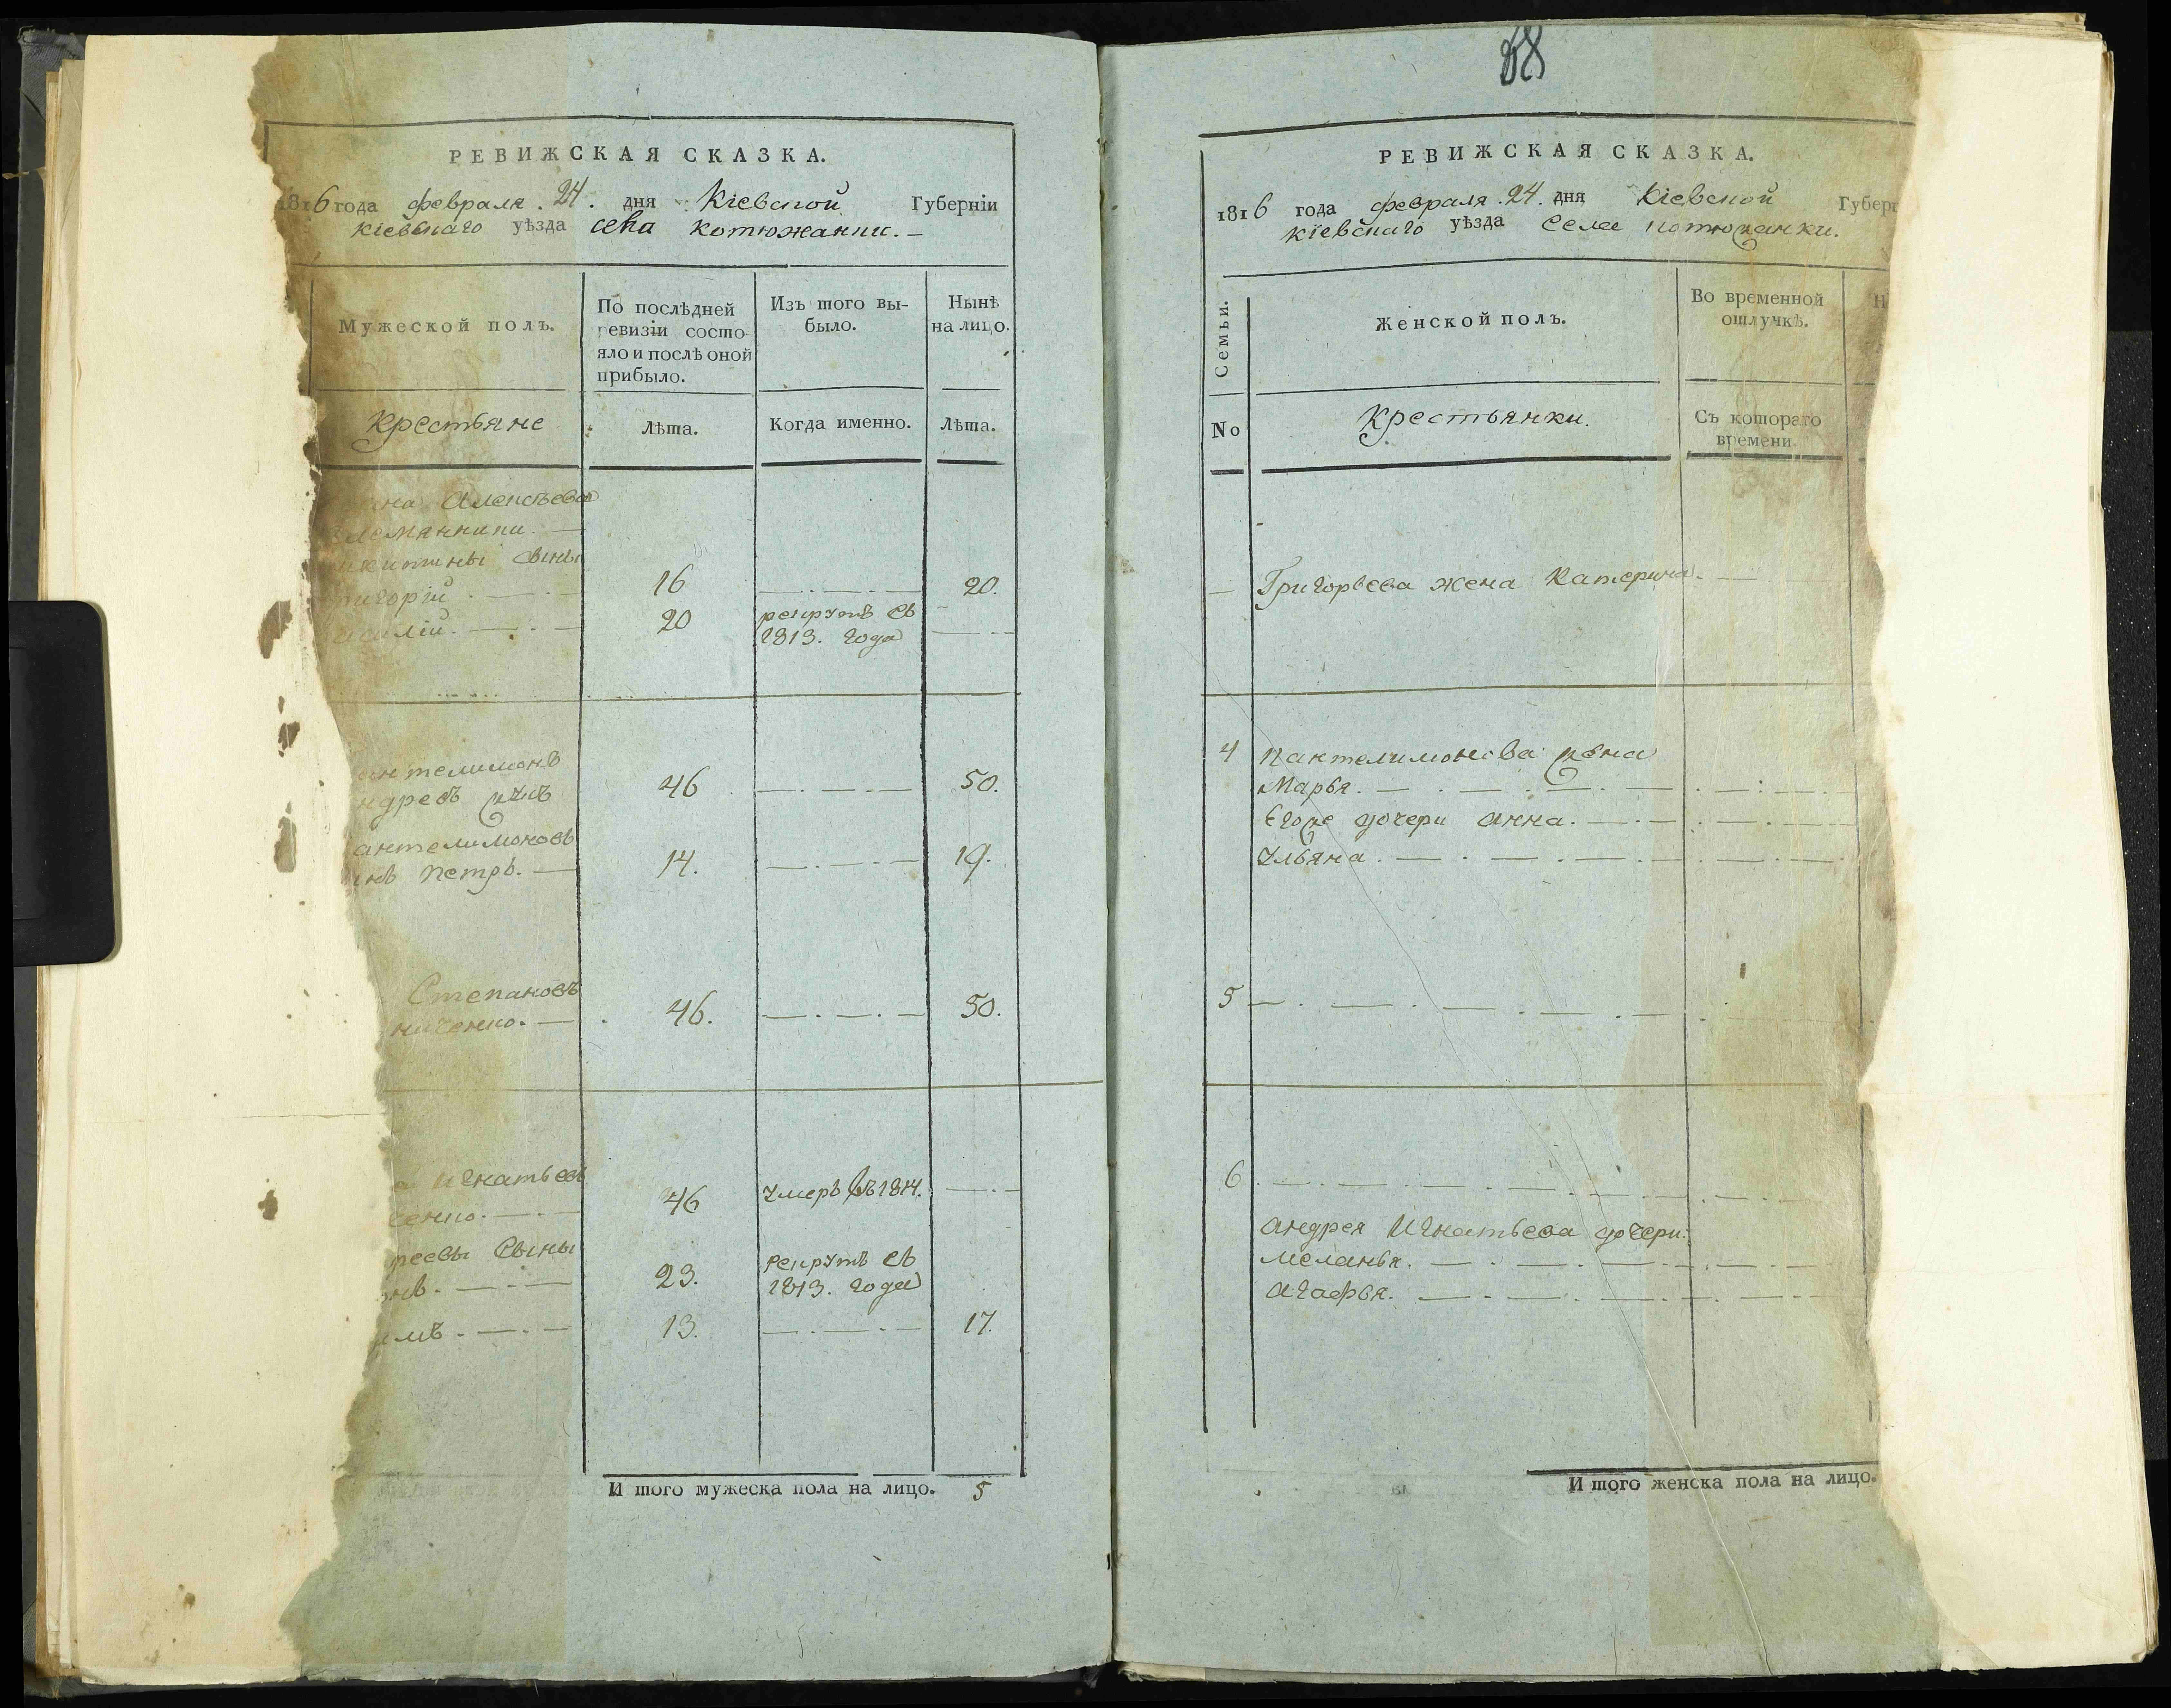 РЕВИЖСКАЯ СКАЗКА.
1816 года февраля. 24. дня Кіевской Губерніи
кіевскаго уѣзда села котюжанки. —
Мужеской полъ.
По послѣдней ревизіи состояло и послѣ оной прибыло.
Изъ того выбыло.
Нынѣ на лицо.
Крестьяне
Лѣта.
Когда именно.
Лѣта.
Алексѣева
племянники. —
никитины сыны
григорій . — . — 16 — . — . — 20.
василій. — . — 20 рекрутъ въ
1813. года
антелимонъ
ндреевъ 46 — . — . — 50.
антелимоновъ
нъ петръ. — 14. — . — . — 19.
Степановъ
ниченко. — 46. — . — . — 50.
игнатьевъ
ченко. — . — 46 умеръ въ 1814. — . —
реевы сыны
онъ. — . — 23. рекрутъ въ
1813. года
имъ. — . — 13. — . — . — 17.
И того мужеска пола на лицо. 5
68
РЕВИЖСКАЯ СКАЗКА.
1816 года февраля. 24. дня Кіевской Губер
кіевскаго уѣзда села котюжанки.
Семьи.
Женской полъ.
Во временной отлучкѣ.
Н
No
крестьянки.
Съ котораго времени.
— Григорьева жена катерина. —
4 пантелимонова жена
Марья. — . — . — . —
Егоже дочери анна. — . —
Ульяна. — . — . — . —
5 — . — . — . — . —
6 . — . — . — . — . —
андрея Игнатьева дочери:
меланья. — . — . — . —
агафья. — . — . — . —
И того женска пола на лицо.